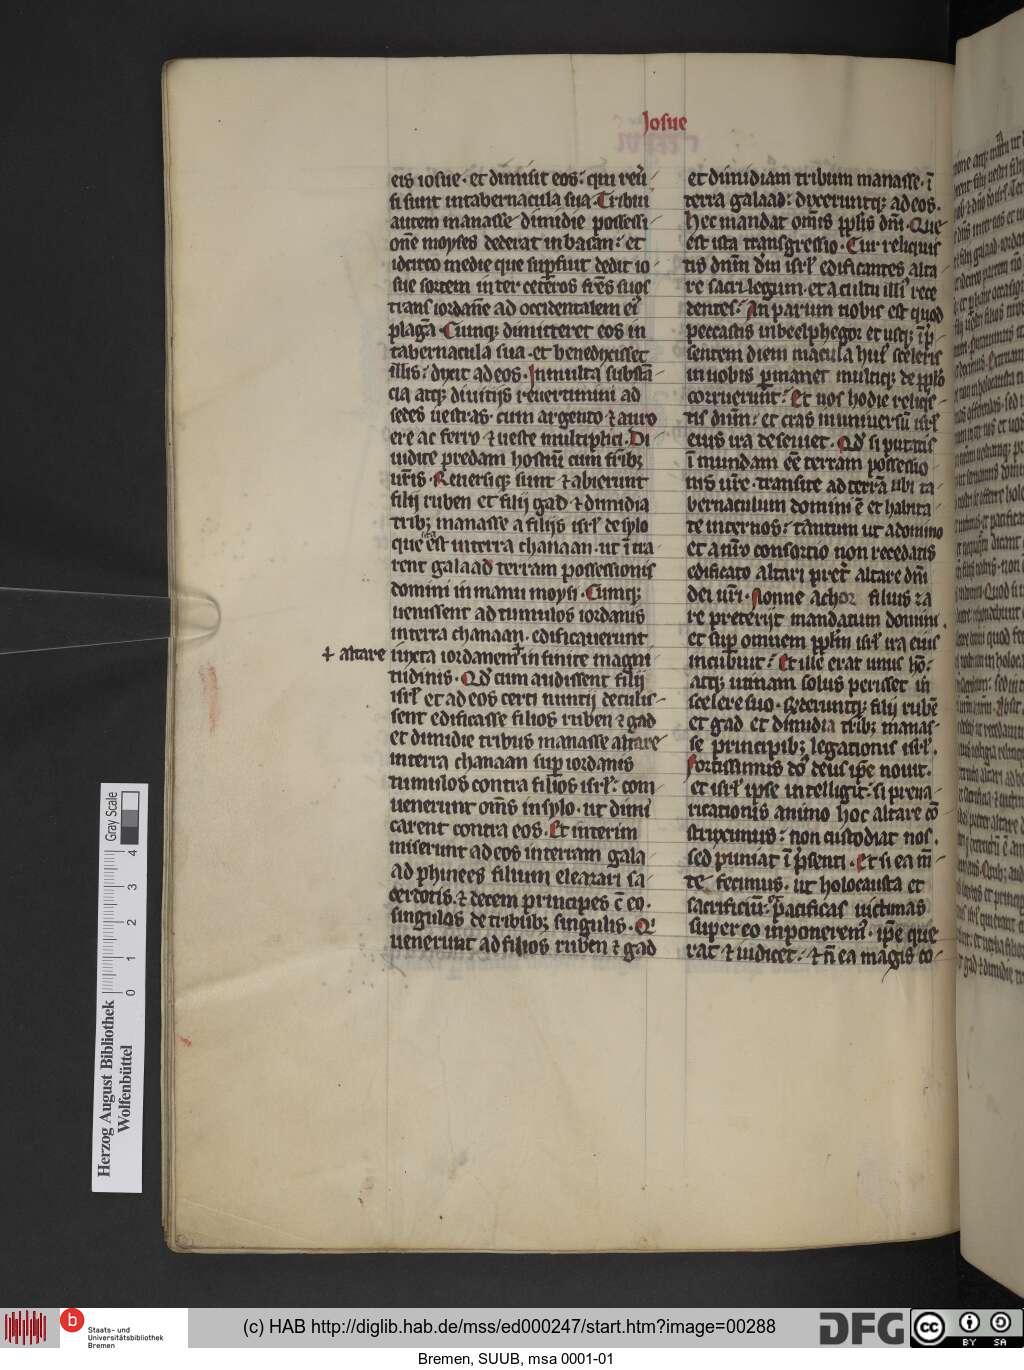 Josue
eis iosue · et dimisit eos : qui reũ
si sunt in tabernacula sua · Tribui
autem manasse dimidie possessi
onẽ moyses dederat in basan : et
idcirco medie que sup̃fiut dedit io
sue sortem inter ceteros fr̃es suos
trans iordanẽ ad occidentalem ei᷒
plagã · Cumq; dimitteret eos in
tabernacula sua · et benedixisset
illis : dyxit ad eos · In multa substã
cia atq; diuitijs reuertimini ad
sedes uestras · cum argento ⁊ auro
ere ac ferro ⁊ ueste multiplici · Di
uidite predam hostiũ cum frib;
ur̃is · Reuersiq; sunt ⁊ abierunt
filij ruben et filij gad ⁊ dimidia
trib; manasse a filijs isrł de sylo
que sita est in terra chanaan · ut ĩtra
rent galaad terram possessionis
domini in manu moysi · Cumq;
uenissent ad tumulos iordanis
in terra chanaan · edificauerunt
⁊ altare iuxta iordanem in finite magni
tudinis · Qd̃ cum audissent filij
isrł et ad eos certi nuntij detulis
sent edificasse filios ruben ⁊ gad
et dimidie tribus manasse altare
in terra chanaan sup̃ iordanis
tumulos contra filios isrł : con
uenerunt om̃s in sylo · ut dimi
carent contra eos · Et interim
miserunt ad eos in terram gala
ad phinees filium eleazari sa
cerdotis · ⁊ decem principes cũ eo ·
singulos de tribub; singulis · Q᷒
uenerunt ad filios ruben ⁊ gad
et dimidiam tribum manasse · ĩ
terra galaad : dyxeruntq; ad eos ·
Hec mandat om̃is pp̃lis dñi · Que
est ista transgressio · Cur reliquis
tis dñm dm̃ isrł edificantes alta
re sacrilegum · et a cultu illi᷒ rece
dentes : An parum uobis est quod
peccastis in beelphegor et usq; ĩ p̃
sentem diem macula hui᷒ sceleris
in uobis p̃manet multiq; de pp̃lo
corruerunt : Et uos hodie reliq̃s
tis dñm : et cras in uniuersũ isrł
eius ira deseuiet · Qd̃ si putatis
ĩ mundam eẽ terram possessio
nis ur̃e · transite ad terrã ubi ta
bernaculum domini ẽ et habita
te inter nos : tantum ut a domino
et a nr̃o consortio non recedatis
edificato altari pret̃ altare dñi
dei nr̃i · Nonne achor filius za
re preterijt mandatum domini ·
et sup̃ omnem pp̃lm isrł ira eius
incubuit : Et ille erat unus hõ :
atq; utinam solus perisset in
scelere suo · Responderuntq; filij rubẽ
et gad et dimidia trib; manas
se principib; legationis isrł ·
Fortissimus ds̃ deus ip̃e nouit ·
et isrł ipse intelligit : si preua
ricationis animo hoc altare cõ
struximus : non custodiat nos ·
sed puniat ĩ p̃senti · Et si ea m̃
te fecimus · ut holocausta et
sacrificiũ · pacificas uictimas
super eo inponerem᷒ · ip̃e que
rat ⁊ iudicet : ⁊ ñ ea magis co
Gray Scale
4
3
2
1
0
Herzog August Bibliothek
Wolfenbüttel
b
Staats- und
Universitätsbibliothek
Bremen
(c) HAB http://diglib.hab.de/mss/ed000247/start.htm?image=00288
DFG
cc
BY SA
Bremen, SUUB, msa 0001-01